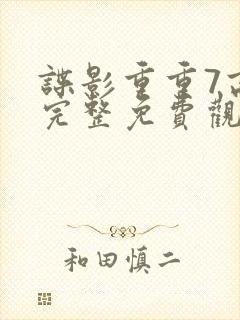 諜影重重7高
完整免費觀
和田慎二